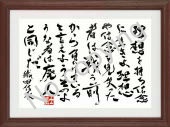 理想を持ち信念
に生きよ理想
や信念を見失った
者は戦う前
から負けている
と言えよう そのよ
うな者は廃人
と同じだ
織田信長